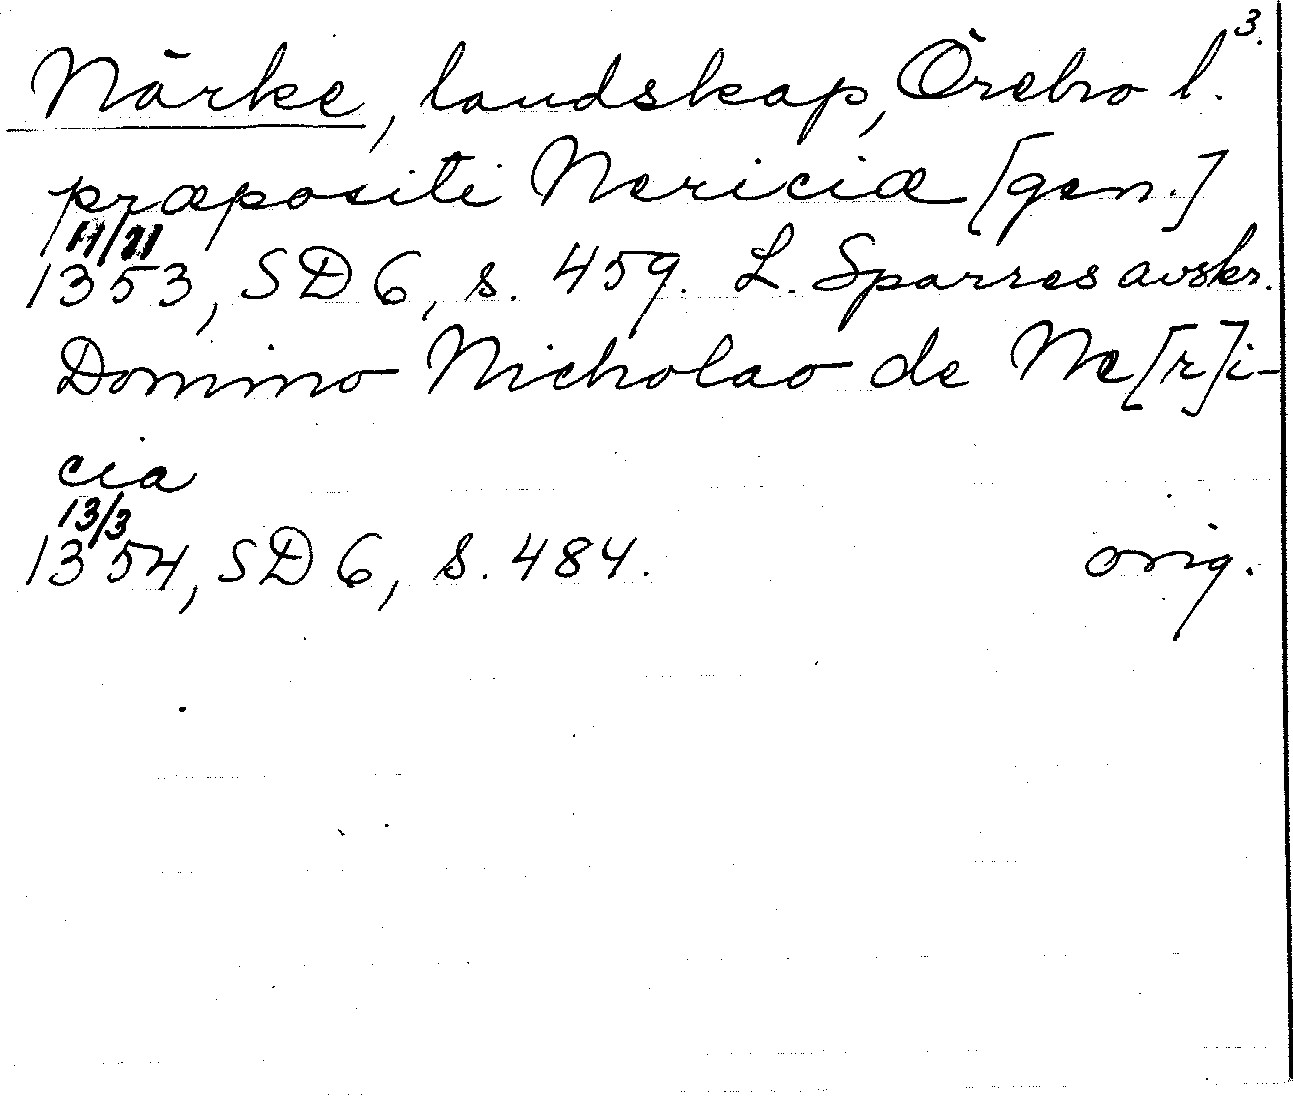 3.
Närke, landskap, Örebro l.
præpositi Nericiæ [gen.]
11/11
1353, SD 6, s. 459. L. Sparres avskr.
Domino Nicholao de Ne[r]i-
cia
13/3
1354, SD 6, s. 484. orig.